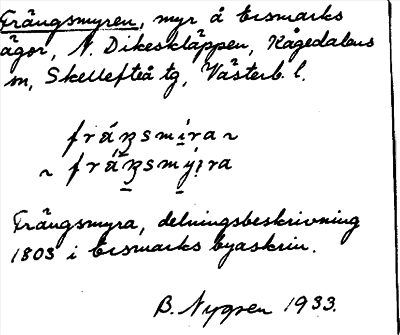 Frängsmyren, myr å Ersmarks
ägor, N. Dikeskläppen, Kågedalens
sn, Skellefteå tg, Västerb. l.
frá̈ŋsmi̱ra ~
~ frá̈ŋsmýi̱ra
Frängsmyra, delningsbeskrivning
1803 i Ersmarks byaskrin.
B. Nygren 1933.